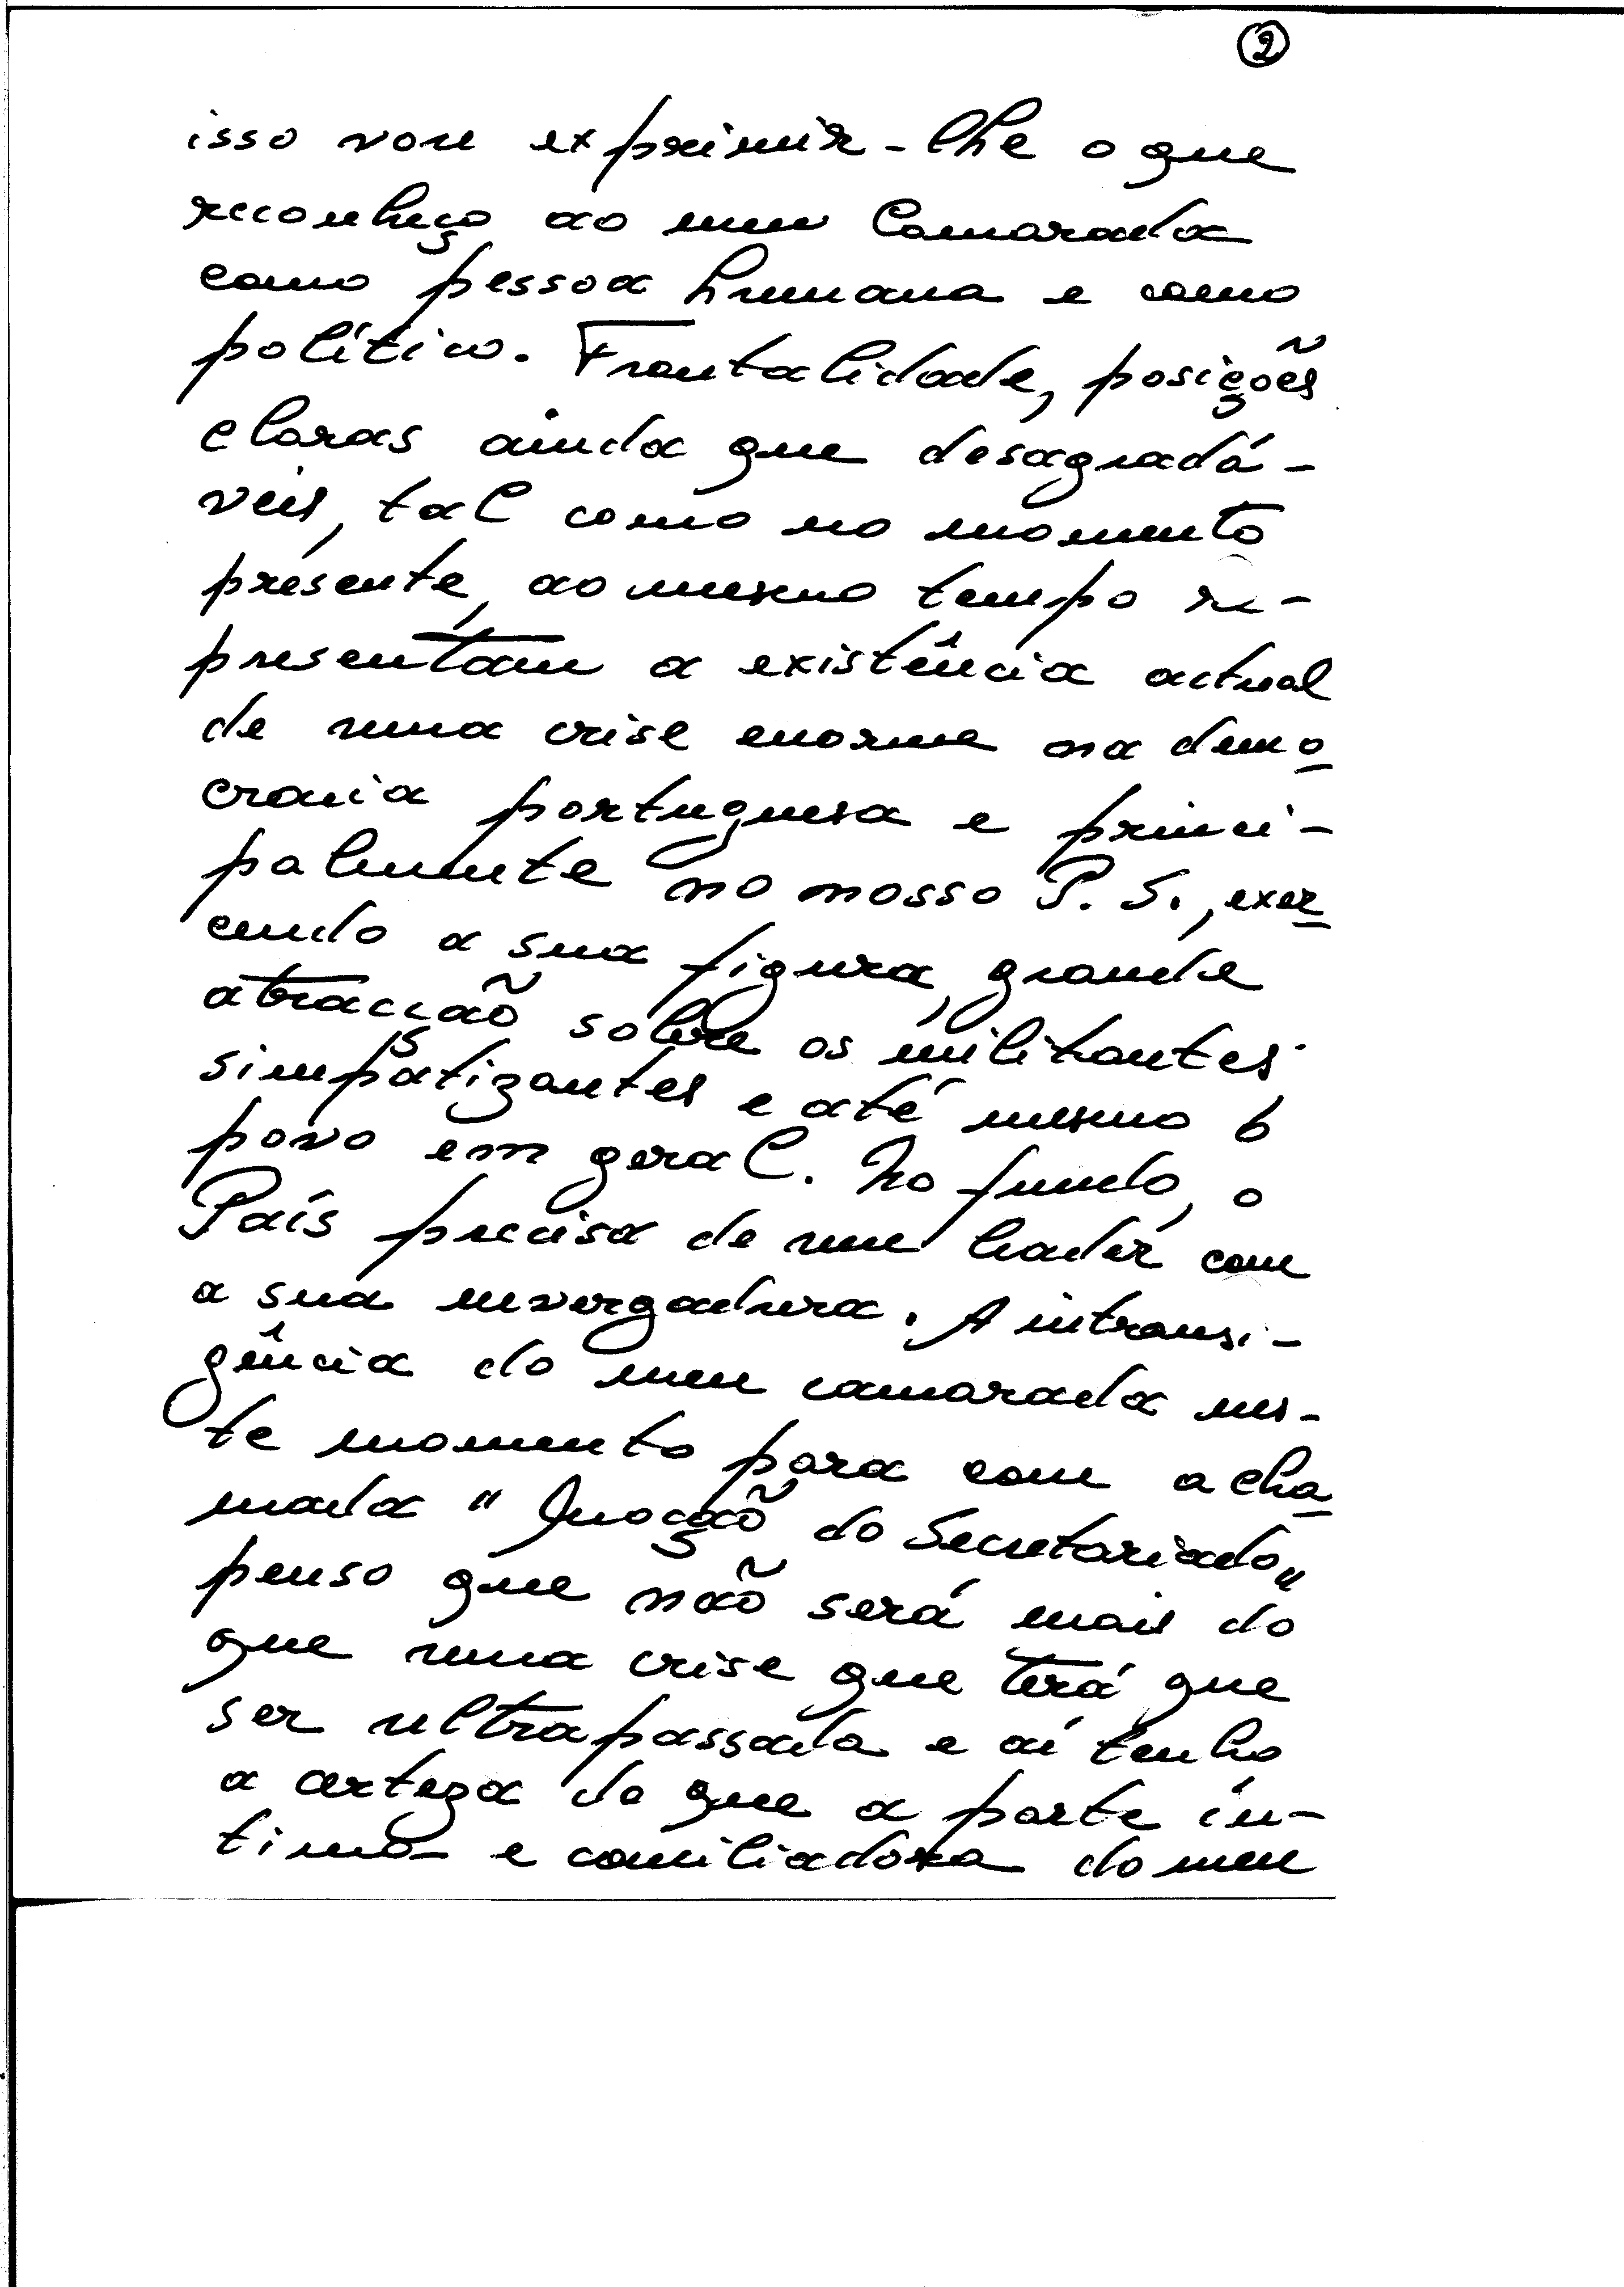 2
isso vou exprimir-lhe o que
reconheço ao meu Camarada
como pessoa humana e como
político. Frontalidade, posições
claras ainda que desagradá-
veis, tal como no momento
presente, ao mesmo tempo re-
presentam a existência actual
de uma crise enorme na demo
cracia portuguesa e princi-
palmente no nosso P. S., exer
cendo a sua figura, grande
atracção sobre os militantes
simpatizantes e até mesmo o
povo em geral. No fundo, o
País precisa de um leader com
a sua envergadura. A intransi-
gência do meu camarada nes-
te momento para com a cha
mada "Moção do Secretariado"
penso que não será mais do
que uma crise que terá que
ser ultrapassada e aí tenho
a certeza de que a parte ín-
tima e conciliadora do meu